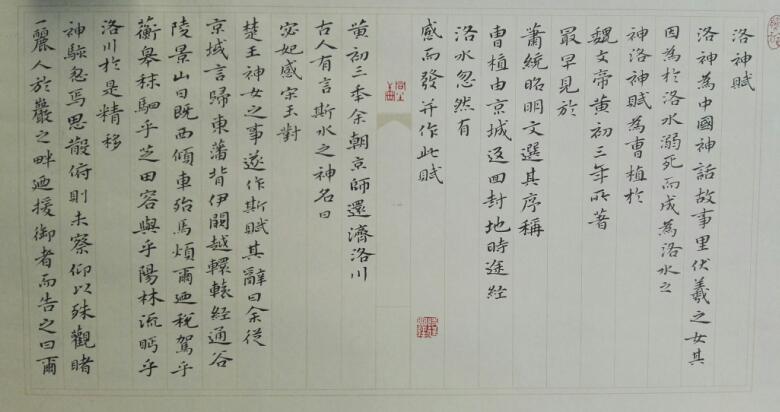 洛神賦
洛神為中國神話故事里伏羲之女其
因為於洛水溺死而成為洛水之
神洛神賦為曹植於
魏文帝黃初三年所著
最早見於
蕭統昭明文選其序稱
曹植由京城返回封地時途經
洛水忽然有
感而發并作此賦
黃初三年余朝京師還濟洛川
古人有言斯水之神名曰
宓妃感宋玉對
楚王神女之事遂作斯賦其辭曰余從
京域言歸東藩背伊闕越轘轅經通谷
陵景山日既西傾車殆馬煩爾迺稅駕乎
蘅皋秣駟乎芝田容與乎陽林流眄乎
洛川於是精移
神駭忽焉思散俯則未察仰以殊觀睹
一麗人於巖之畔迺援御者而告之曰爾